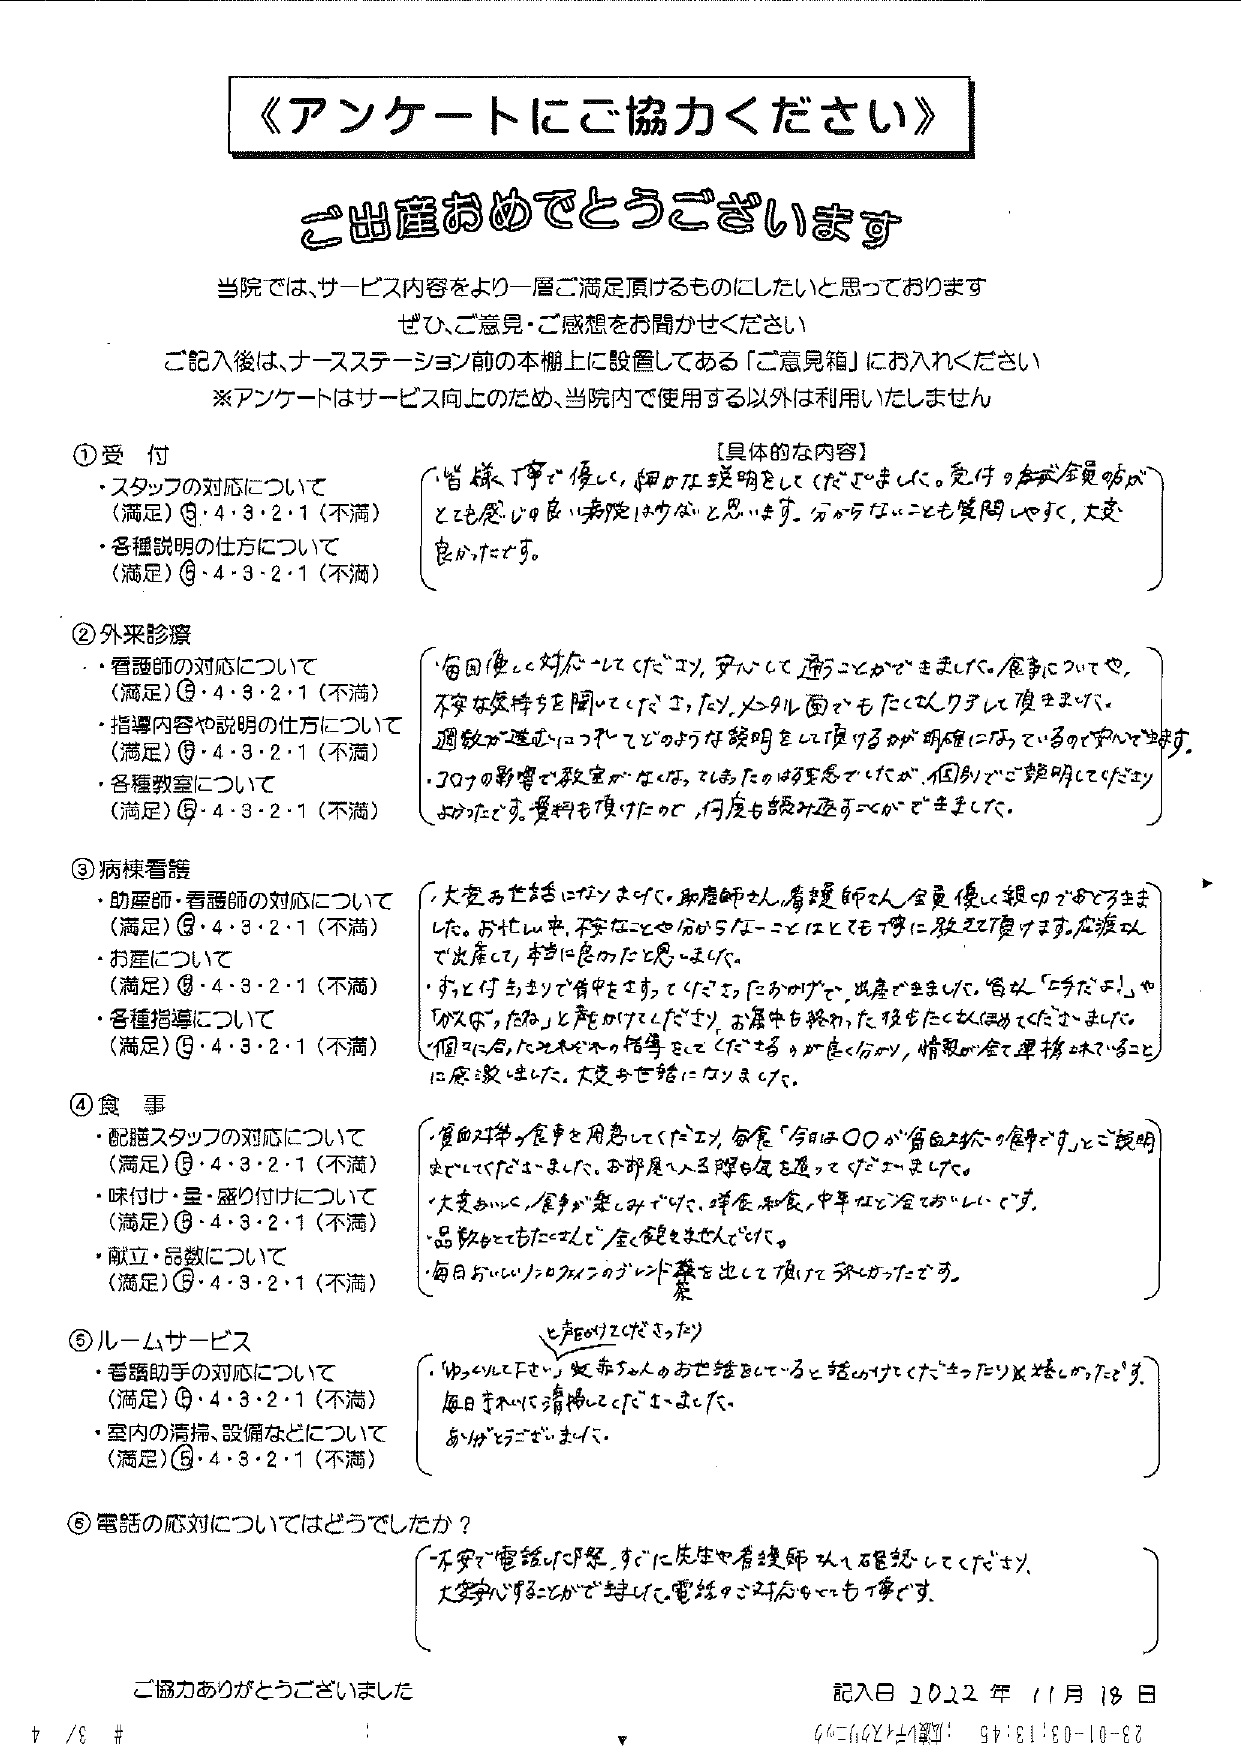 《アンケートにご協力ください》
ご出産おめでとうございます
当院では、サービス内容をより一層ご満足頂けるものにしたいと思っております
ぜひ、ご意見・ご感想をお聞かせください
ご記入後は、ナースステーション前の本棚上に設置してある「ご意見箱」にお入れください
※アンケートはサービス向上のため、当院内で使用する以外は利用いたしません
①受　付
【具体的な内容】
・スタッフの対応について
(満足) 5・4・3・2・1 (不満)
・各種説明の仕方について
(満足) 5・4・3・2・1 (不満)
・皆様丁寧で優しく、細かな説明をしてくださいました。受付の方が全員の方が
とても感じの良い病院は少ないと思います。分からないことも質問しやすく、大変
良かったです。
②外来診療
・看護師の対応について
(満足) 5・4・3・2・1 (不満)
・指導内容や説明の仕方について
(満足) 5・4・3・2・1 (不満)
・各種教室について
(満足) 5・4・3・2・1 (不満)
・毎回優しく対応してくださり、安心して通うことができました。食事についてや、
不安な気持ちを聞いてくださったり、メンタル面でもたくさんケアして頂きました。
週数が進むにつれてどのような説明をして頂けるかが明確になっているので安心できます。
・コロナの影響で教室がなくなってしまったのは残念でしたが、個別でご説明してくださり
よかったです。資料も頂けたので、何度も読み返すことができました。
③病棟看護
・助産師・看護師の対応について
(満足) 5・4・3・2・1 (不満)
・お産について
(満足) 5・4・3・2・1 (不満)
・各種指導について
(満足) 5・4・3・2・1 (不満)
・大変お世話になりました。助産師さん、看護師さん全員優しく親切でおどろきま
した。お忙しい中、不安なことや分からないことはとても丁寧に教えて頂けます。広渡さん
で出産して、本当に良かったと思いました。
・ずっと付きっきりで背中をさすってくださったおかげで、出産できました。皆さん「上手だよ!」や
「がんばったね」と声をかけてくださり、お産中も終わった後もたくさんほめてくださいました。
・個々に合ったそれぞれの指導をしてくださるのが良く分かり、情報が全て連携されていること
に感激しました。大変お世話になりました。
④食　事
・配膳スタッフの対応について
(満足) 5・4・3・2・1 (不満)
・味付け・量・盛り付けについて
(満足) 5・4・3・2・1 (不満)
・献立・品数について
(満足) 5・4・3・2・1 (不満)
・貧血対策の食事を用意してくださり、毎食「今日は〇〇が貧血対策の食事です」とご説明
までしてくださいました。お部屋へ入る際も気を遣ってくださいました。
・大変おいしく、食事が楽しみでした。洋食、和食、中華など全ておいしいです。
・品数もとてもたくさんで全く飽きませんでした。
・毎日おいしいノンカフェインのブレンド茶を出して頂けてうれしかったです。
⑤ルームサービス
・看護助手の対応について
(満足) 5・4・3・2・1 (不満)
・室内の清掃、設備などについて
(満足) 5・4・3・2・1 (不満)
と声をかけてくださったり
・「ゆっくりして下さい」赤ちゃんのお世話をしていると話しかけてくださったり嬉しかったです。
毎日きれいに清掃してくださいました。
ありがとうございました。
⑥電話の応対についてはどうでしたか?
・不安で電話した際、すぐに先生や看護師さんへ確認してくださり、
大変安心することができました。電話のご対応もとても丁寧です。
ご協力ありがとうございました
記入日 2022 年 11 月 18 日
23-01-03;13:45 ;広渡レディスクリニック
# 3/ 4